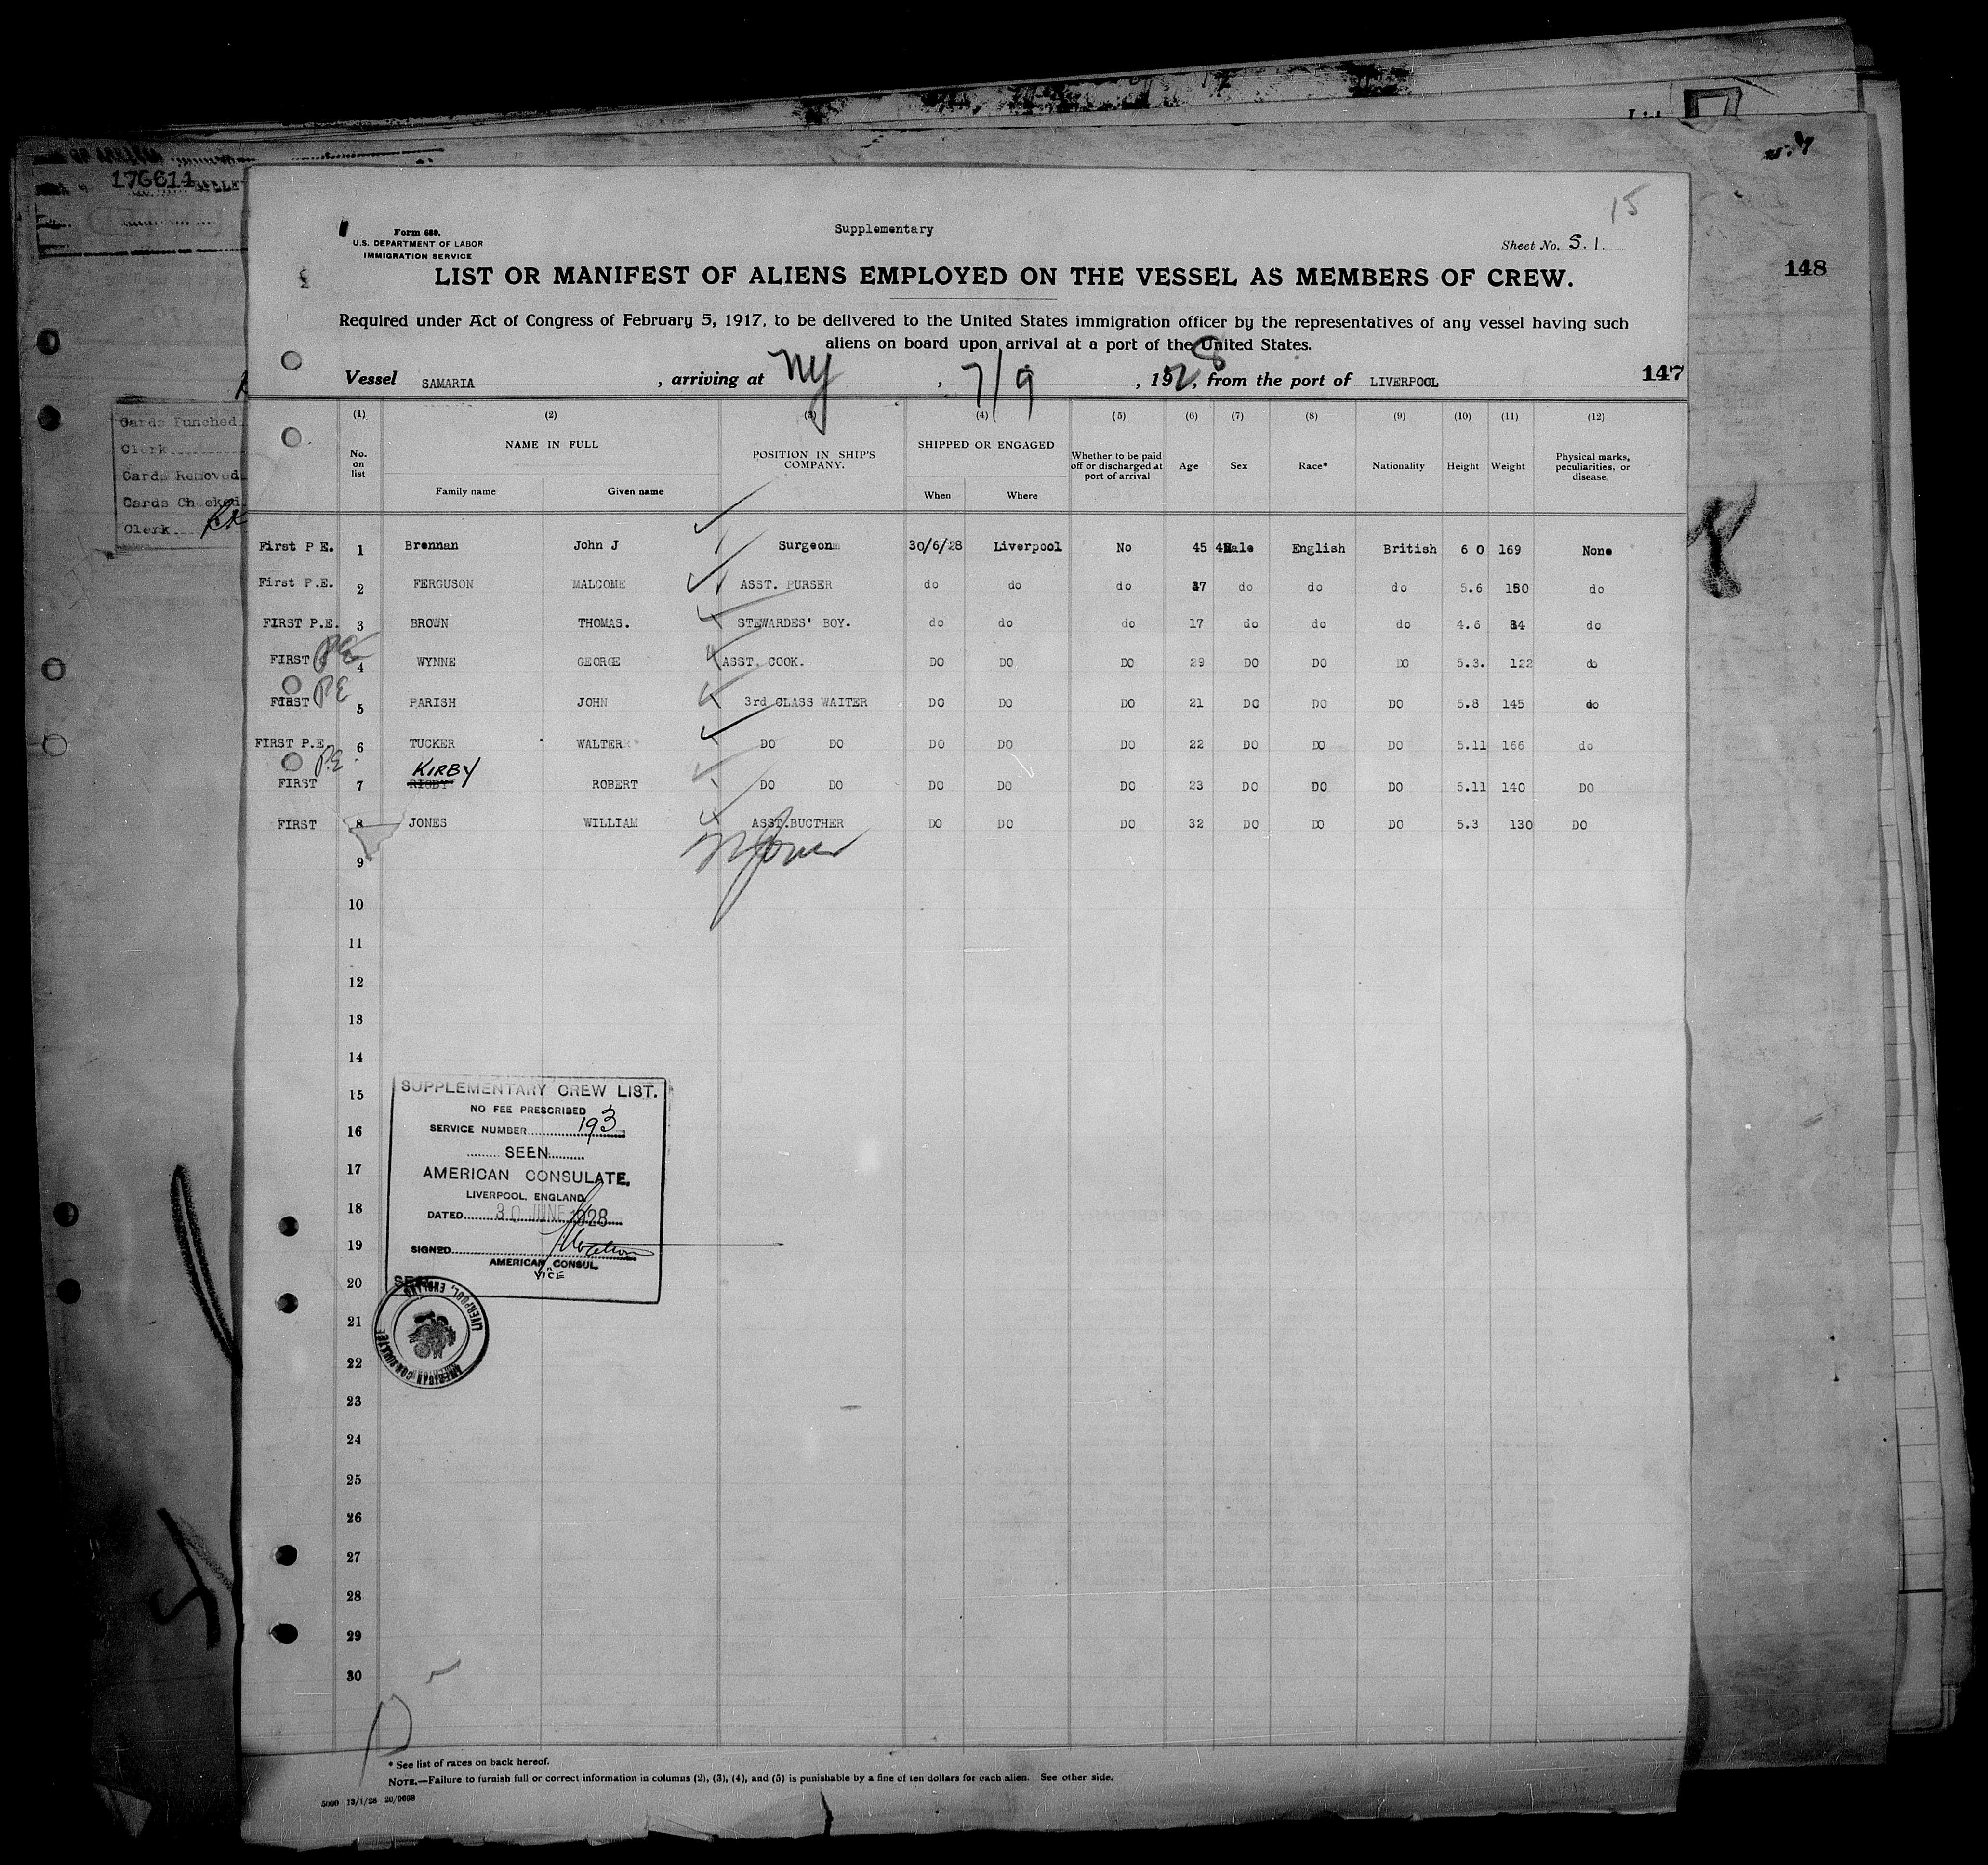 176614
15
Form 680.
U.S. DEPARTMENT OF LABOR
IMMIGRATION SERVICE
Supplementary
Sheet No. S. 1.
148
LIST OR MANIFEST OF ALIENS EMPLOYED ON THE VESSEL AS MEMBERS OF CREW.
Required under Act of Congress of February 5, 1917, to be delivered to the United States immigration officer by the representatives of any vessel having such
aliens on board upon arrival at a port of the United States.
Vessel SAMARIA , arriving at NY , 7/9 , 1928, from the port of LIVERPOOL 147
Cards Punched
Clerk
Cards Removed
Cards Checked
Clerk
(1) (2) (3) (4) (5) (6) (7) (8) (9) (10) (11) (12)
No. on list NAME IN FULL POSITION IN SHIP'S COMPANY. SHIPPED OR ENGAGED Whether to be paid off or discharged at port of arrival Age Sex Race* Nationality Height Weight Physical marks, peculiarities, or disease.
Family name Given name When Where
First P E. 1 Brennan John J Surgeon 30/6/28 Liverpool No 45 Male English British 6 0 169 None
First P.E. 2 FERGUSON MALCOME ASST. PURSER do do do 37 do do do 5.6 150 do
FIRST P.E. 3 BROWN THOMAS. STEWARDES' BOY. do do do 17 do do do 4.6 84 do
FIRST PE 4 WYNNE GEORGE ASST. COOK. DO DO DO 29 DO DO DO 5.3. 122 do
FIRST PE 5 PARISH JOHN 3rd CLASS WAITER DO DO DO 21 DO DO DO 5.8 145 do
FIRST P.E. 6 TUCKER WALTER DO DO DO DO DO 22 DO DO DO 5.11 166 do
P.E KIRBY
FIRST 7 RIGBY ROBERT DO DO DO DO DO 23 DO DO DO 5.11 140 DO
FIRST 8 JONES WILLIAM ASST.BUCTHER DO DO DO 32 DO DO DO 5.3 130 DO
9
10
11
12
13
14
15
16
17
18
19
20
21
22
23
24
25
26
27
28
29
30
SUPPLEMENTARY CREW LIST.
NO FEE PRESCRIBED
SERVICE NUMBER 193
SEEN
AMERICAN CONSULATE,
LIVERPOOL, ENGLAND
DATED 30 JUNE 1928
SIGNED
AMERICAN CONSUL
VICE
SEAL
AMERICAN CONSULATE LIVERPOOL, ENGLAND
* See list of races on back hereof.
NOTE.—Failure to furnish full or correct information in columns (2), (3), (4), and (5) is punishable by a fine of ten dollars for each alien. See other side.
5000 13/1/28 20/9668